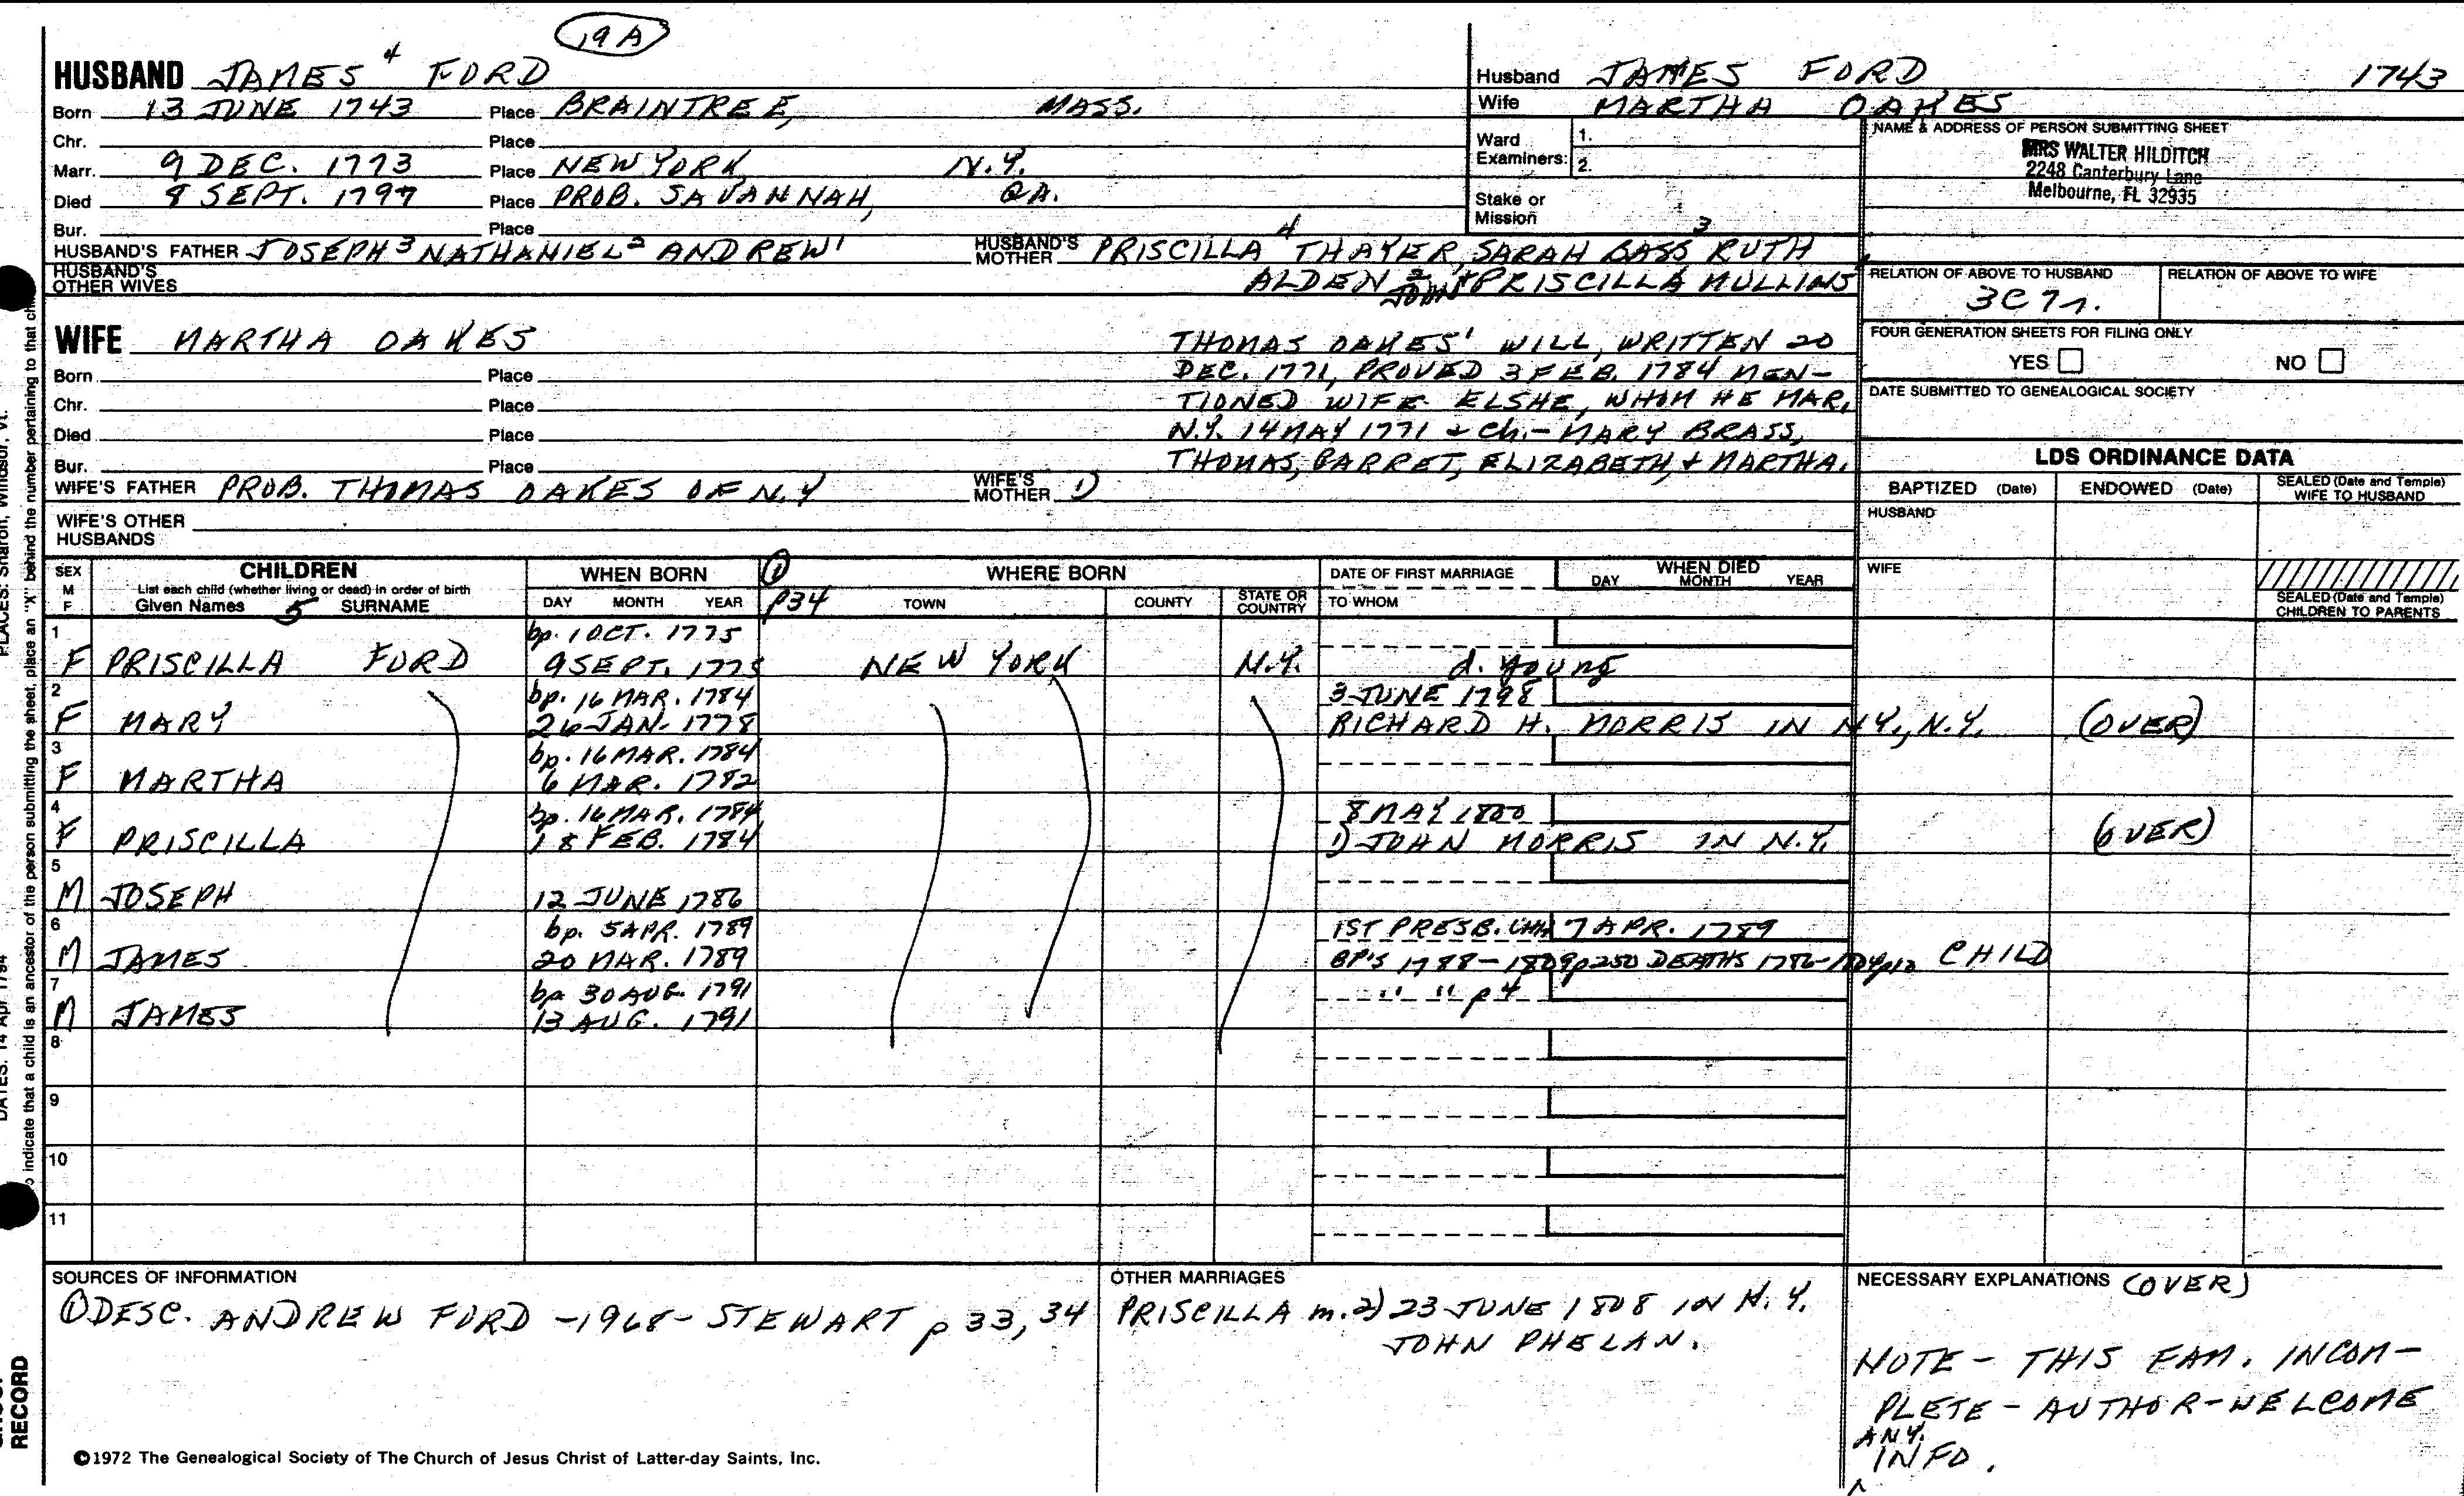 19A
HUSBAND JAMES 4 FORD
Born 13 JUNE 1743 Place BRAINTREE, MASS.
Chr. Place
Marr. 9 DEC. 1773 Place NEW YORK, N.Y.
Died 8 SEPT. 1797 Place PROB. SAVANNAH, GA.
Bur. Place
HUSBAND'S FATHER JOSEPH 3 NATHANIEL 2 ANDREW 1 HUSBAND'S MOTHER PRISCILLA 4 THAYER, SARAH BASS 3 RUTH
HUSBAND'S OTHER WIVES ALDEN 2 JOHN 1 + PRISCILLA MULLINS
Husband JAMES FORD 1743
Wife MARTHA OAKES
Ward Examiners: 1.
2.
Stake or Mission
NAME & ADDRESS OF PERSON SUBMITTING SHEET
MRS WALTER HILDITCH
2248 Canterbury Lane
Melbourne, FL 32935
RELATION OF ABOVE TO HUSBAND RELATION OF ABOVE TO WIFE
3C7r.
FOUR GENERATION SHEETS FOR FILING ONLY
YES NO
DATE SUBMITTED TO GENEALOGICAL SOCIETY
WIFE MARTHA OAKES
Born Place
Chr. Place
Died Place
Bur. Place
THOMAS OAKES' WILL, WRITTEN 20
DEC. 1771, PROVED 3 FEB. 1784 MEN-
TIONED WIFE ELSHE, WHOM HE MAR.
N.Y. 14 MAY 1771 & Ch.- MARY BRASS,
THOMAS, GARRET, ELIZABETH, + MARTHA.
WIFE'S FATHER PROB. THOMAS OAKES OF N.Y WIFE'S MOTHER 1)
WIFE'S OTHER HUSBANDS
LDS ORDINANCE DATA
BAPTIZED (Date) ENDOWED (Date) SEALED (Date and Temple) WIFE TO HUSBAND
HUSBAND
WIFE
SEALED (Date and Temple) CHILDREN TO PARENTS
SEX M F
CHILDREN
List each child (whether living or dead) in order of birth
Given Names 5 SURNAME
WHEN BORN
DAY MONTH YEAR
① p34
WHERE BORN
TOWN COUNTY STATE OR COUNTRY
DATE OF FIRST MARRIAGE
TO WHOM
WHEN DIED
DAY MONTH YEAR
1 bp. 1 OCT. 1775
F PRISCILLA FORD 9 SEPT. 1775 NEW YORK N.Y. d. young
2 bp. 16 MAR. 1784 3 JUNE 1798
F MARY 26 JAN. 1778 RICHARD H. MORRIS IN N.Y., N.Y. (OVER)
3 bp. 16 MAR. 1784
F MARTHA 6 MAR. 1782
4 bp. 16 MAR. 1784 8 MAY 1800
F PRISCILLA 18 FEB. 1784 1) JOHN MORRIS IN N.Y. (OVER)
5
M JOSEPH 12 JUNE 1786
6 bp. 5 APR. 1789 1ST PRESB. CHH 7 APR. 1789
M JAMES 20 MAR. 1789 BP'S 1788-1809 p250 DEATHS 1786-1804 p12 CHILD
7 bp 30 AUG. 1791 " " p4
M JAMES 13 AUG. 1791
8
9
10
11
SOURCES OF INFORMATION
① DESC. ANDREW FORD -1968- STEWART p 33, 34
OTHER MARRIAGES
PRISCILLA m. 2) 23 JUNE 1808 IN N.Y.
JOHN PHELAN.
NECESSARY EXPLANATIONS (OVER)
NOTE - THIS FAM. INCOM-
PLETE - AUTHOR - WELCOME
ANY
INFO.
©1972 The Genealogical Society of The Church of Jesus Christ of Latter-day Saints, Inc.
PLACES: Sharon, Windsor, Vt.
DATES: 14 Apr 1794
o indicate that a child is an ancestor of the person submitting the sheet, place an "X" behind the number pertaining to that
RECORD